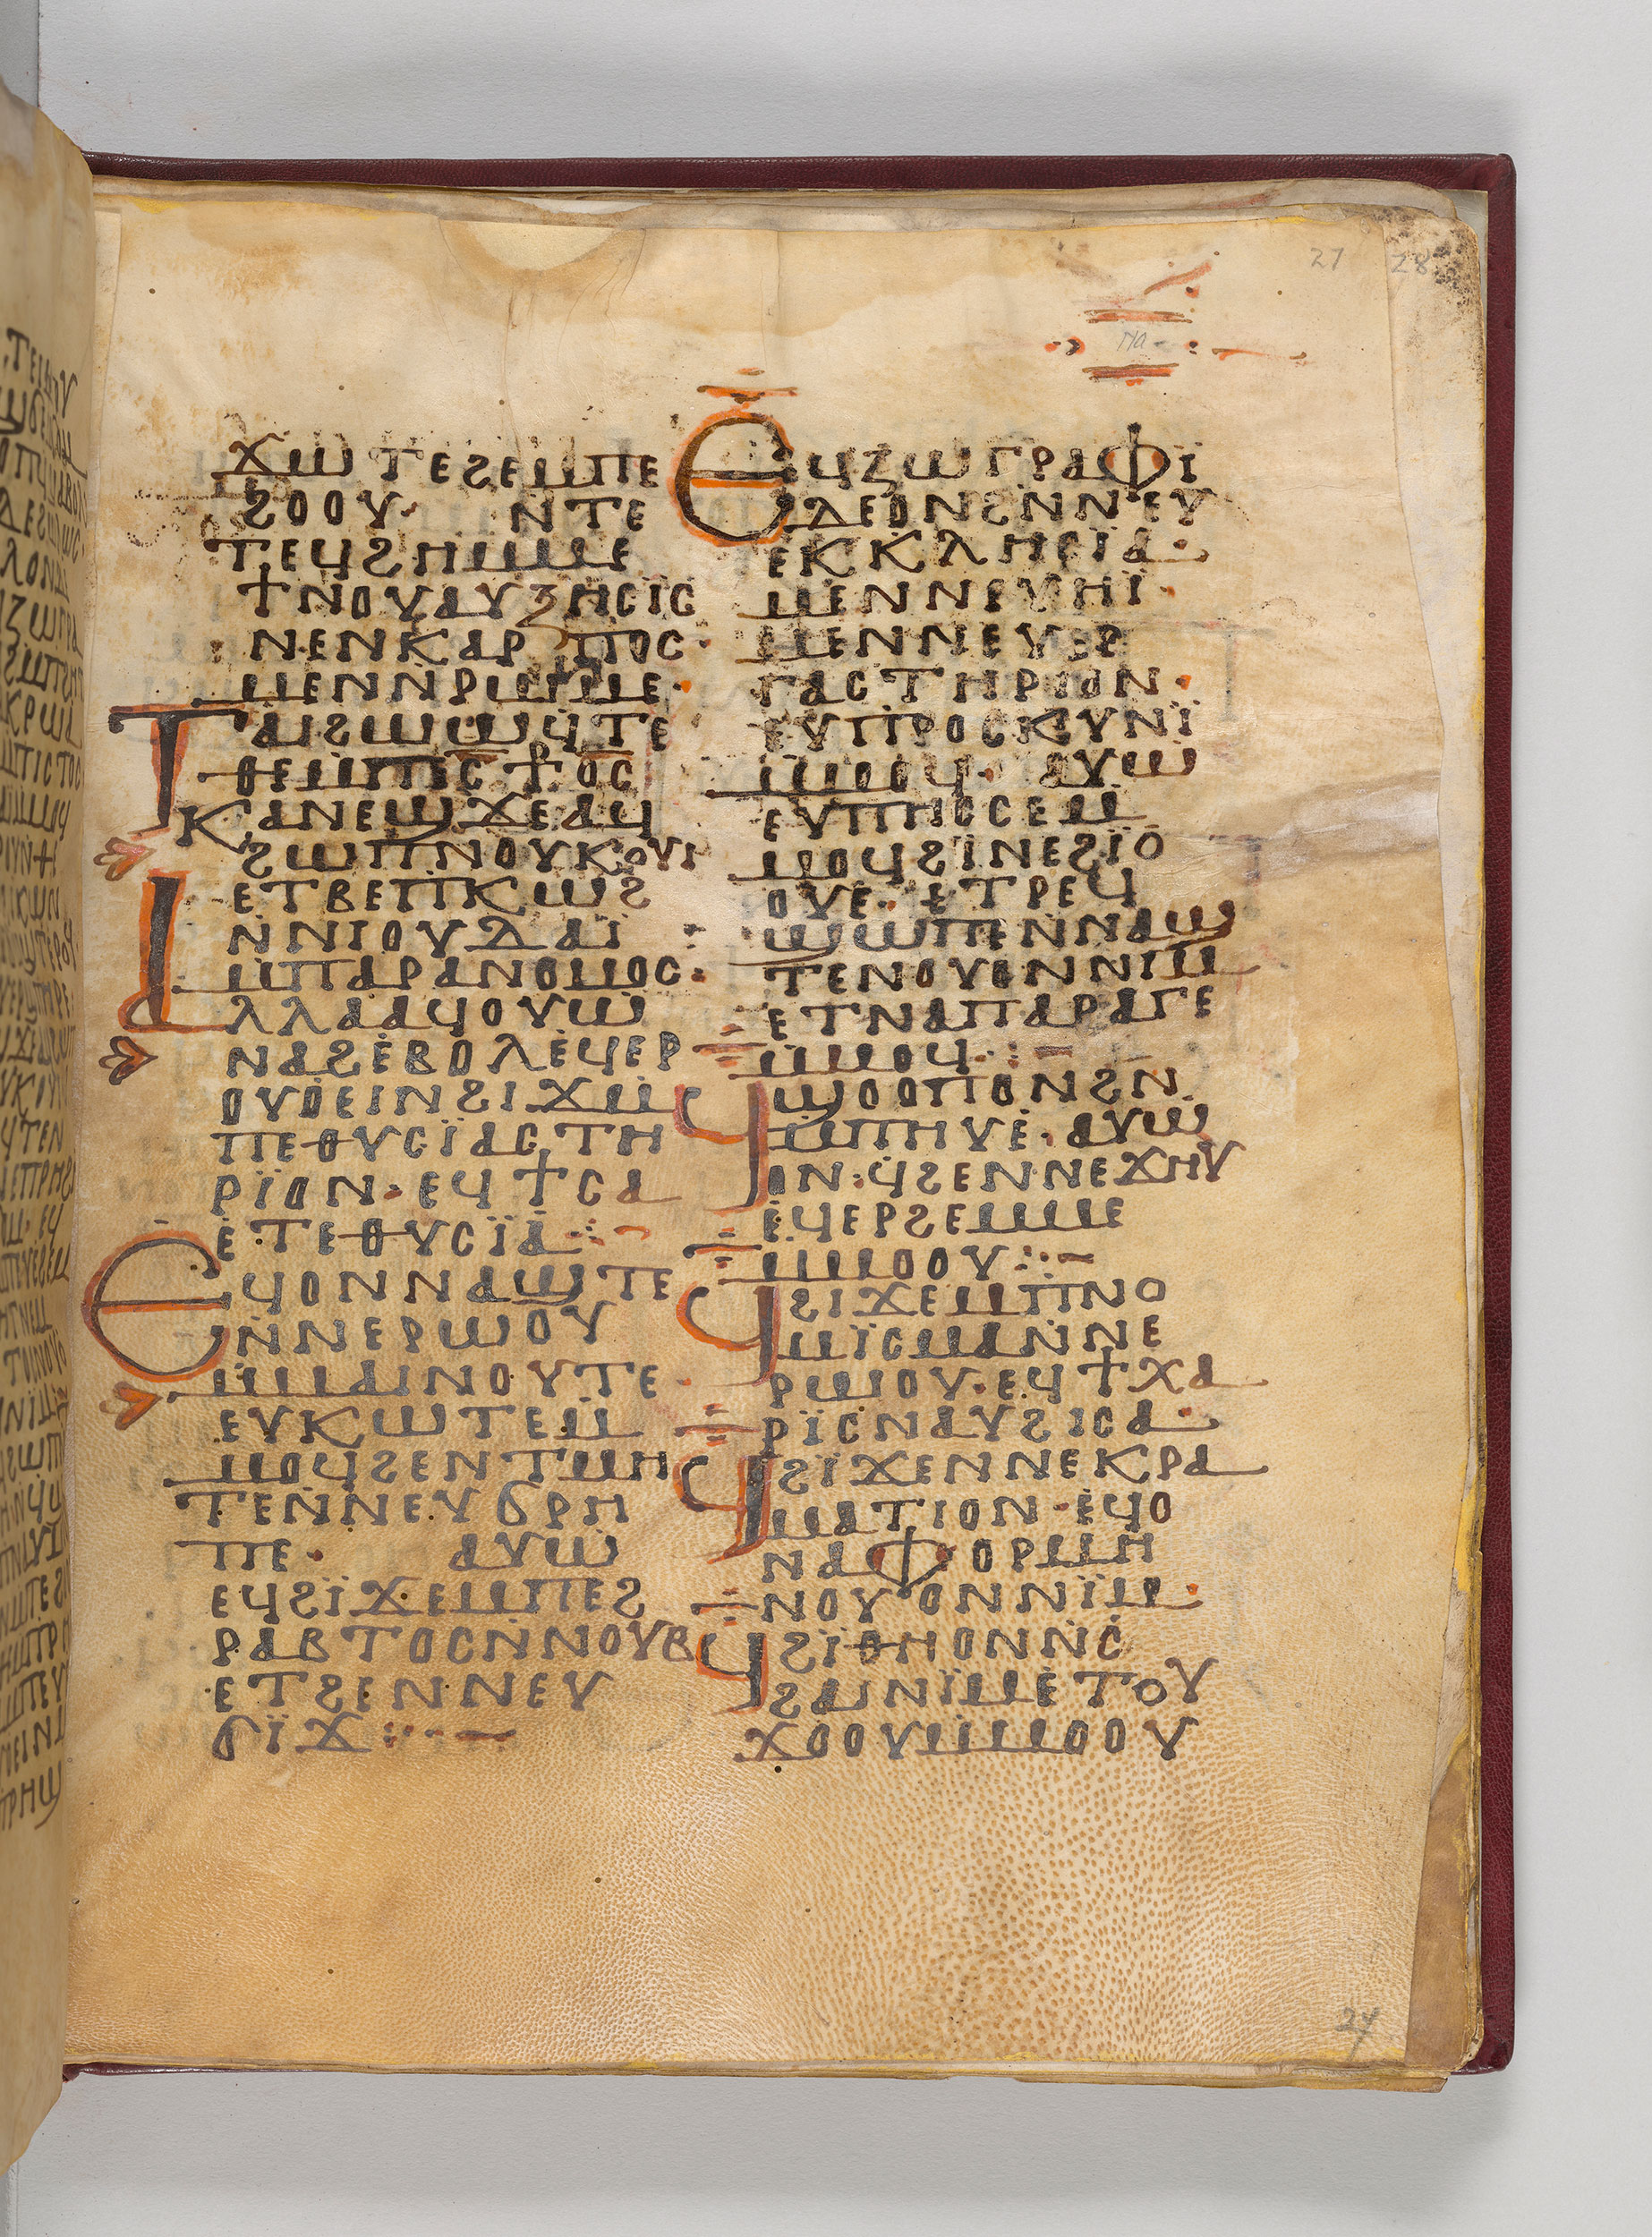 ϫⲱⲧⲉϩⲉⲙⲡⲉ
ϩⲟⲟⲩ· ⲛⲧⲉ
ⲧⲉϥϩⲏⲙⲙⲉ
ϯⲛⲟⲩⲁⲩⲝⲏⲥⲓⲥ
ⲛⲉⲛⲕⲁⲣⲡⲟⲥ·
ⲙⲉⲛⲛ̇ⲣⲱⲙⲉ·
ⲧⲁⲓϩⲱⲱϥⲧⲉ
ⲑⲉⲙⲡⲓⲥϯⲟⲥ
ⲕⲁⲛⲉϣϫⲉⲁϥ
ϩⲱⲡⲛⲟⲩⲕⲟⲩⲓ
ⲉⲧⲃⲉⲡⲕⲱϩ
ⲛ̇ⲛⲓⲟⲩⲇⲁⲓ̈
ⲙⲡⲁⲣⲁⲛⲟⲙⲟⲥ·
ⲁⲗⲗⲁⲁϥⲟⲩⲱ
ⲛⲁϩⲉⲃⲟⲗⲉϥⲉⲣ
ⲟⲩⲟⲉⲓⲛϩⲓϫⲙ
ⲡⲉⲑⲩⲥⲓ̈ⲁⲥⲧⲏ
ⲣⲓ̈ⲟⲛ· ⲉϥϯⲥⲁ
ⲉ̇ⲧⲉⲑⲩⲥⲓ̈ⲁ:–
ⲉϥⲟⲛⲛⲁϣⲧⲉ
ⲛ̇ⲛⲉⲣⲱⲟⲩ
ⲙⲙⲁⲓⲛⲟⲩⲧⲉ·
ⲉⲩⲕⲱⲧⲉⲙ
ⲙⲟϥϩⲉⲛⲧⲙⲏ
ⲧⲉⲛ̇ⲛⲉⲩϭⲣⲏ
ⲡⲉ· ⲁⲩⲱ
ⲉϥϩⲓ̈ϫⲉⲙⲡⲉϩ
ⲣⲁⲃⲧⲟⲥⲛ̇ⲛⲟⲩⲃ
ⲉⲧϩⲉⲛⲛⲉⲩ
ϭⲓ̈ϫ:–
ⲉϥⲍⲱⲅⲣⲁⲫⲓ̈
ⲇⲉⲟⲛϩⲛ̇ⲛⲉⲩ
ⲉⲕⲕⲗⲏⲥⲓ̈ⲁ·
ⲙⲉⲛⲛⲉⲩⲏⲓ̈·
ⲙⲉⲛⲛⲉⲩⲉⲣ
ⲅⲁⲥⲧⲏⲣⲓⲟⲛ·
ⲉⲩⲡⲣⲟⲥⲕⲩⲛⲓ̈
ⲙⲙⲟϥ· ⲁⲩⲱ
ⲉⲩⲡⲏⲥⲥⲉⲙ
ⲙⲟϥϩⲓ̈ⲛⲉϩⲓ̈ⲟ
ⲟⲩⲉ· ⲉⲧⲣⲉϥ
ϣⲱⲡⲉⲛⲛⲁϣ
ⲧⲉⲛⲟⲩⲟⲛⲛⲓⲙ
ⲉⲧⲛⲁⲡⲁⲣⲁⲅⲉ
ⲙⲙⲟϥ·:–
ϥϣⲟⲟⲡⲟⲛϩⲛ
ⲙⲡⲏⲩⲉ̇· ⲁⲩⲱ
ⲟⲛ· ϥϩⲉⲛⲛⲉϫⲏⲩ
ⲉ̇ϥⲉⲣϩⲉⲙⲙⲉ
ⲙⲙⲟⲟⲩ:–
ϥϩⲓϫⲉⲙⲡⲛⲟ
ⲙⲓ̈ⲥⲙⲁⲛ̇ⲛⲉ
ⲣⲱⲟⲩ· ⲉϥϯⲭⲁ
ⲣⲓ̈ⲥⲛⲁⲩϩⲓⲥⲁ·
ϥϩⲓ̈ϫⲉⲛⲛⲉⲕⲣⲁ
ⲙⲁⲧⲓⲟⲛ· ⲉ̇ϥⲟ
ⲛⲁⲫⲟⲣⲙⲏ
ⲛⲟⲩⲟⲛⲛⲓ̈ⲙ·
ϥϩⲓ̈ⲑⲏⲟⲛⲛ̇ⲥ
ϩⲁⲓⲛⲓ̈ⲙⲉⲧⲟⲩ
ϫⲟⲟⲩⲙⲙⲟⲟⲩ
27
28
27